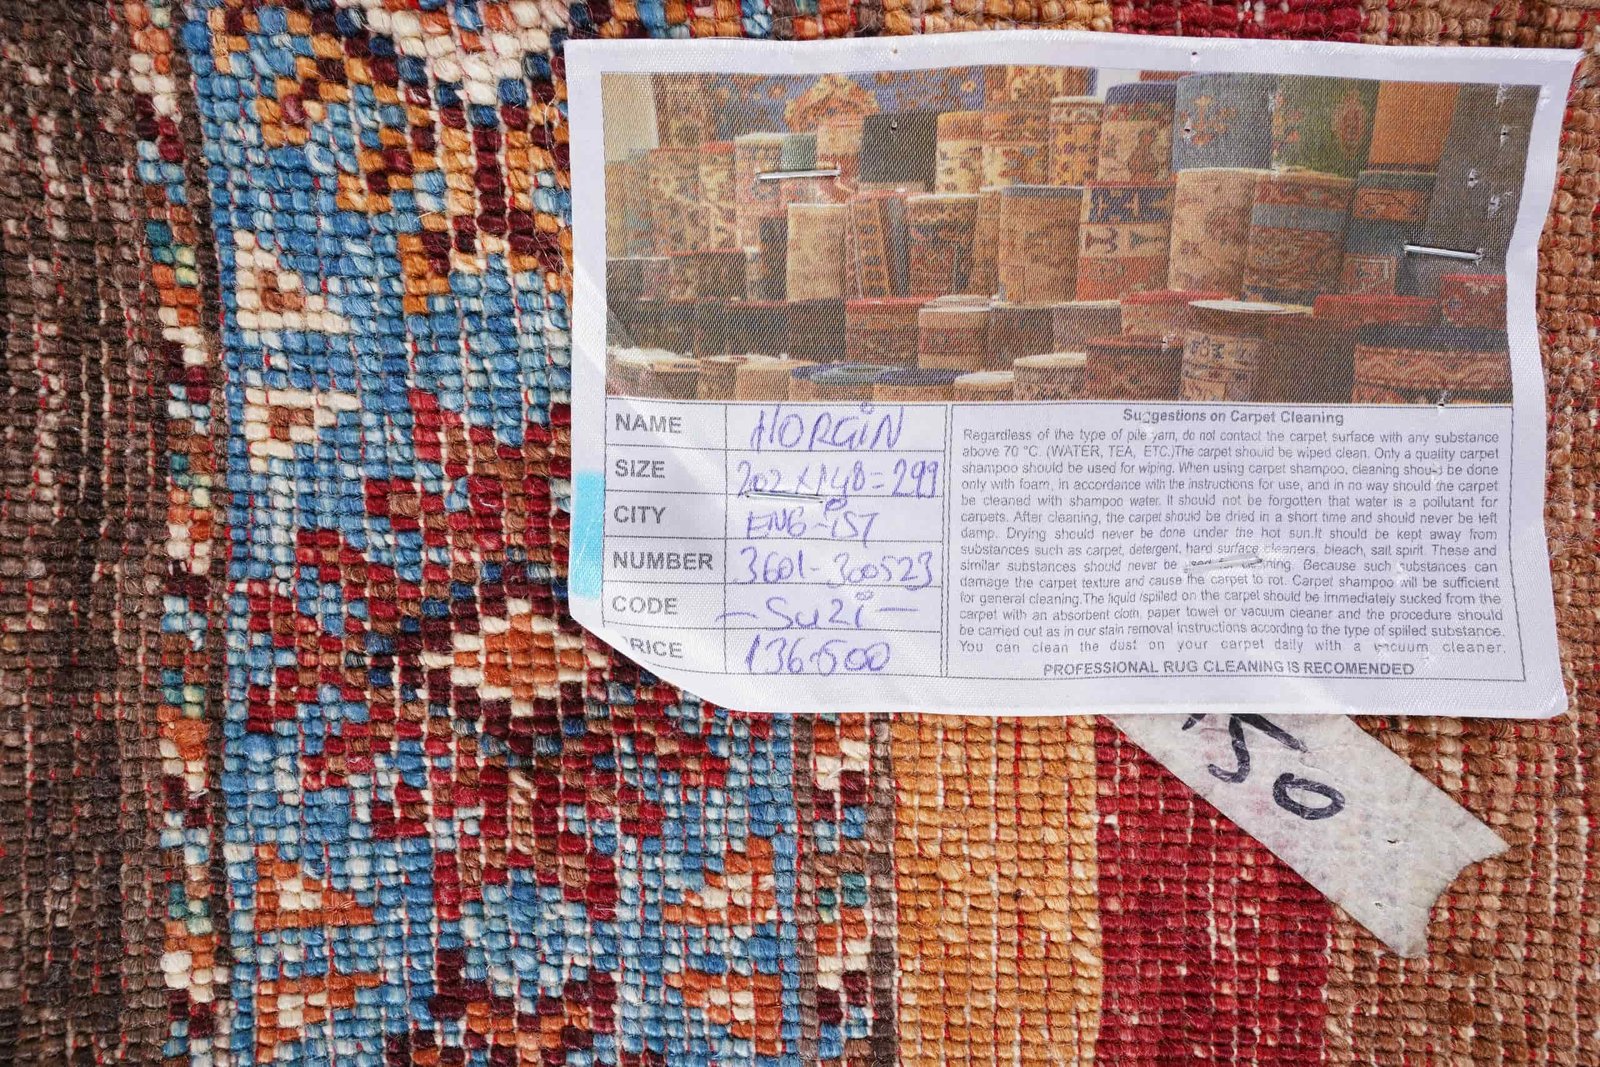 NAME HORGiN
SIZE 202 x 148 = 299
CITY ENG-iST
NUMBER 3601-300523
CODE - Suzi -
RICE 136.500
Suggestions on Carpet Cleaning
Regardless of the type of pile yarn, do not contact the carpet surface with any substance
above 70 °C. (WATER, TEA, ETC.)The carpet should be wiped clean. Only a quality carpet
shampoo should be used for wiping. When using carpet shampoo, cleaning should be done
only with foam, in accordance with the instructions for use, and in no way should the carpet
be cleaned with shampoo water. It should not be forgotten that water is a pollutant for
carpets. After cleaning, the carpet should be dried in a short time and should never be left
damp. Drying should never be done under the hot sun.It should be kept away from
substances such as carpet, detergent, hard surface cleaners, bleach, salt spirit. These and
similar substances should never be Because such substances can
damage the carpet texture and cause the carpet to rot. Carpet shampoo will be sufficient
for general cleaning.The liquid spilled on the carpet should be immediately sucked from the
carpet with an absorbent cloth, paper towel or vacuum cleaner and the procedure should
be carried out as in our stain removal instructions according to the type of spilled substance.
You can clean the dust on your carpet daily with a vacuum cleaner.
PROFESSIONAL RUG CLEANING IS RECOMENDED
50